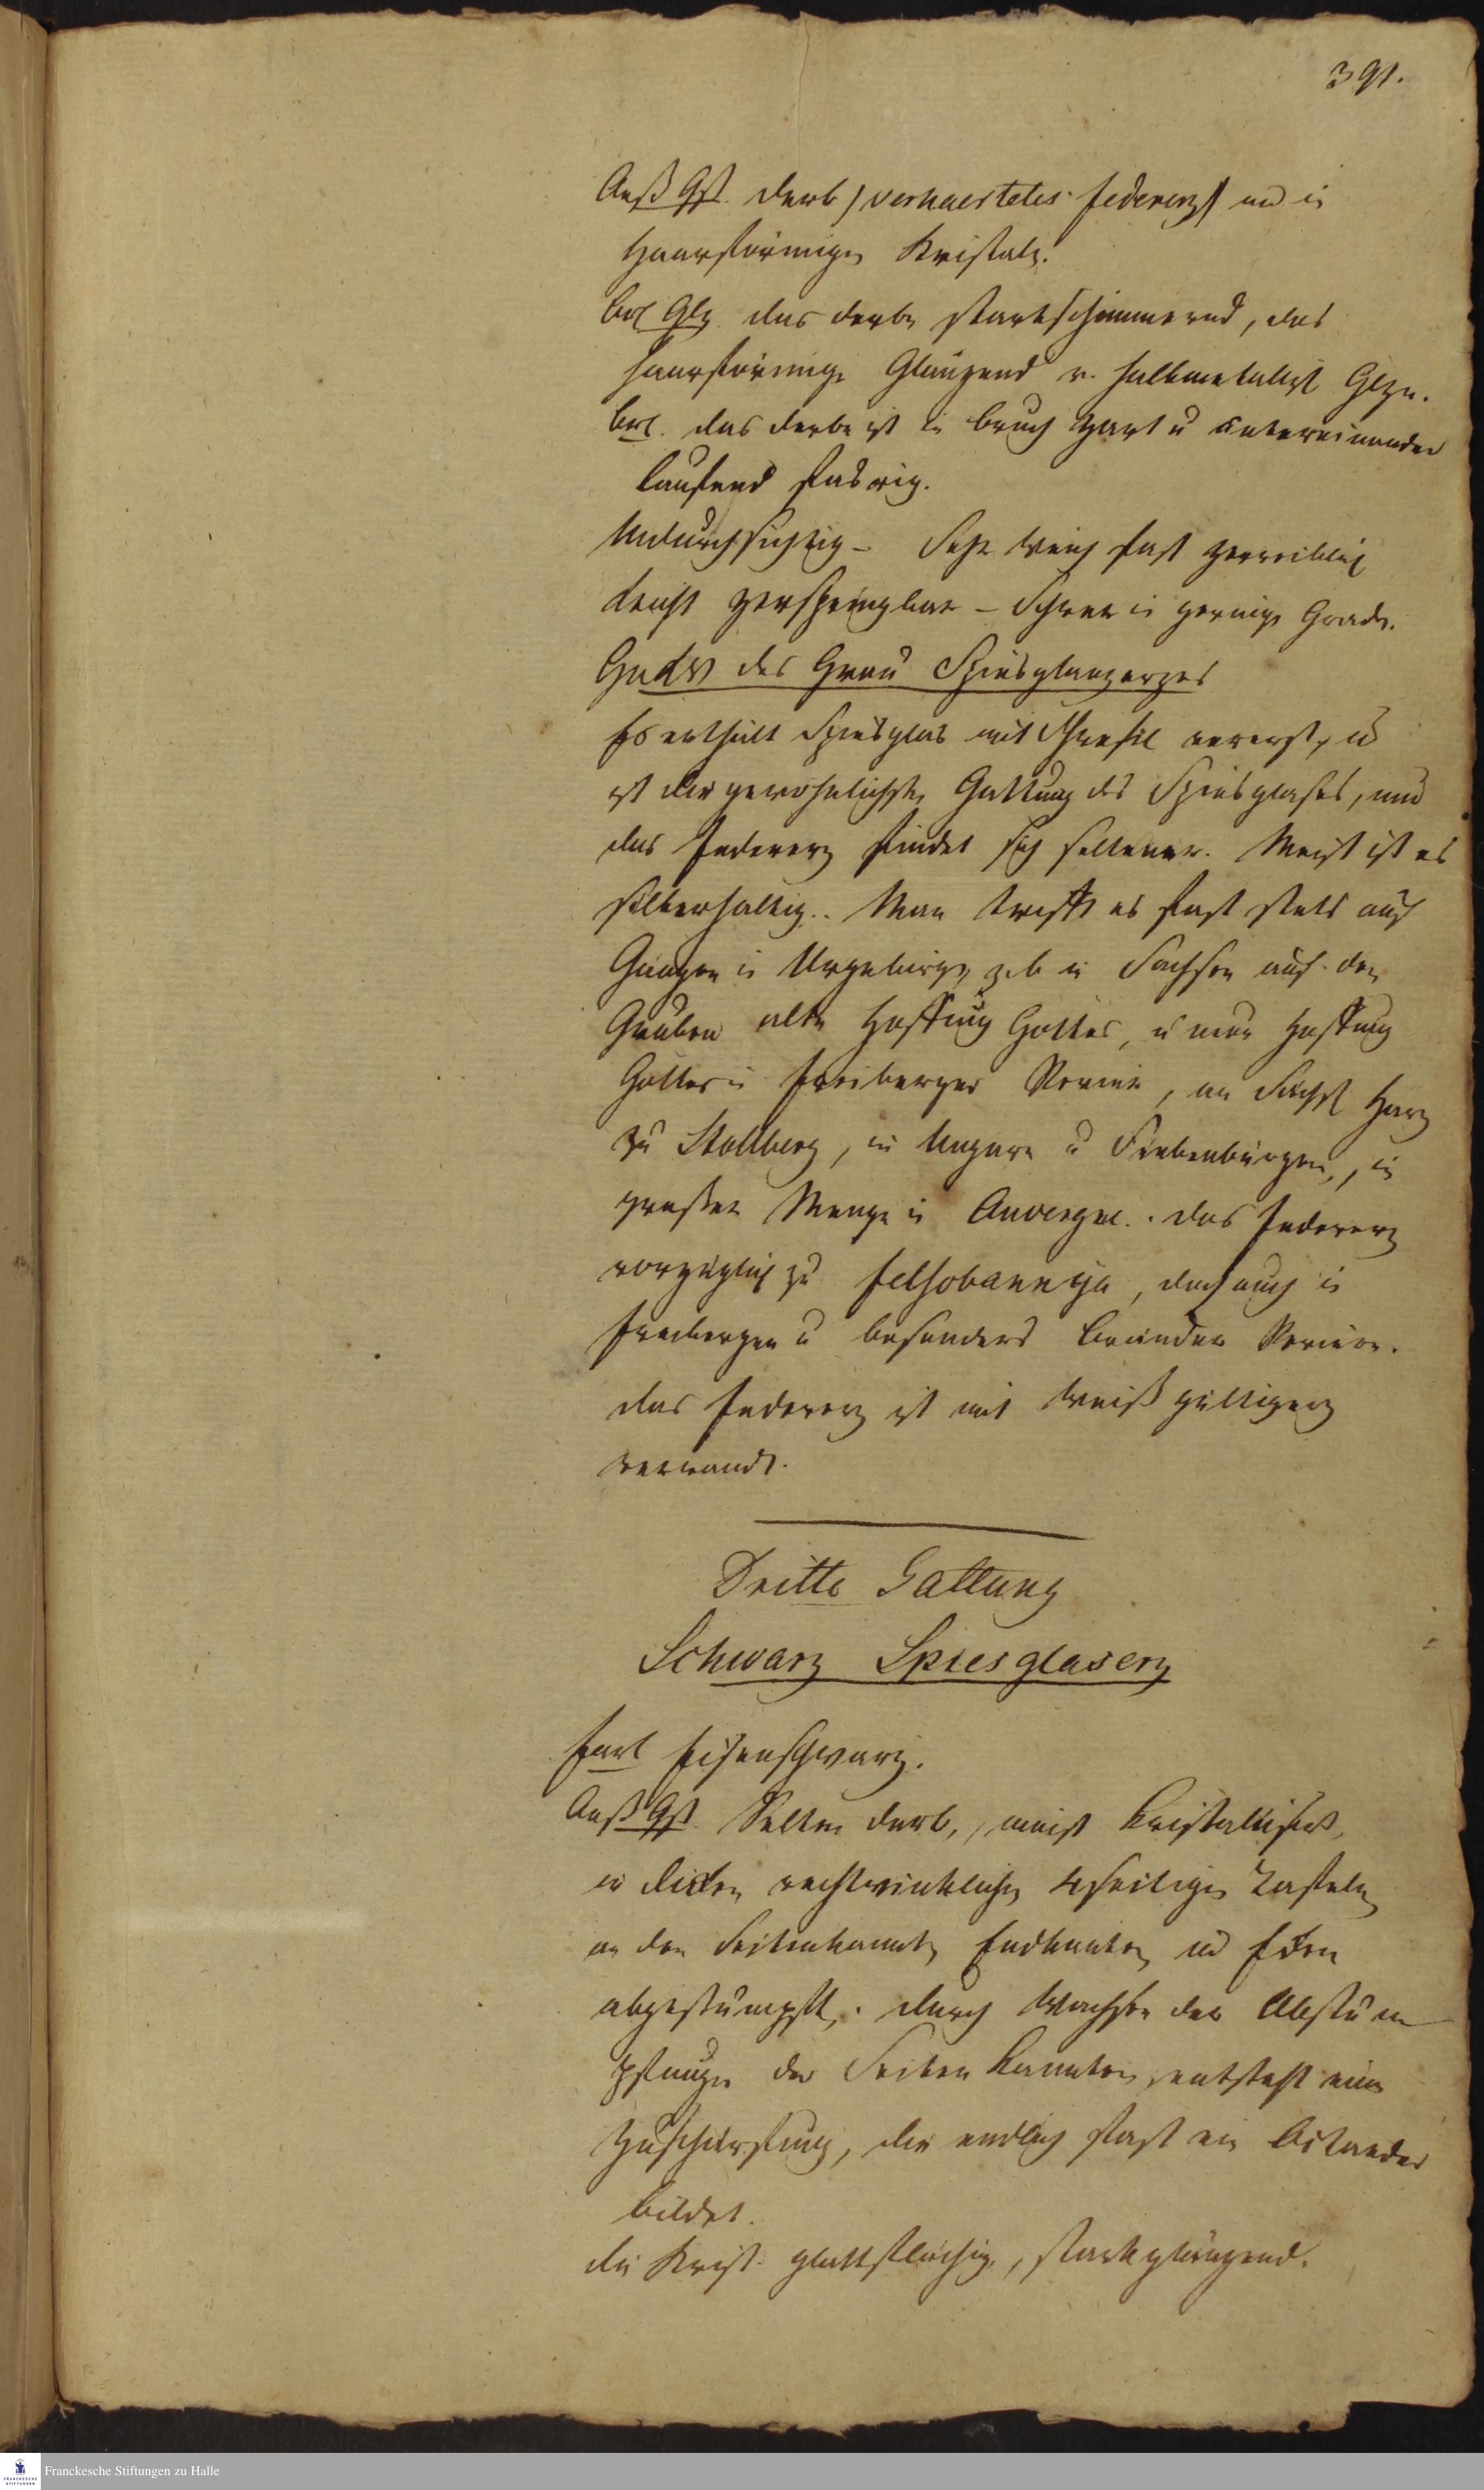 391.
Aeuß Gst. derb / verhaertetes Federerz / und in
Haarförmigen Kristaln.
Brl Glz. das derbe starkschimmernd, das
haarförmige Glänzend v. halbmetallisch Glze.
Brl. das derbe ist in bruch zart u untereinander
laufend fasrig.
Undurchsichtig – Sehr weich fast zerreiblich
Leicht zerspringbar – Schwer in geringen Grade.
des Grau Spiesglanzerzes
Es enthält Spiesglas mit Schwefel vererzt, u
ist die gewöhnlichste Gattung des Spiesglases, und
das Federerz findet sich seltener. Meist ist es
silberhaltig. Man trifft es fast stets auf
Gängen in Urgebirgen z. b in Sachsen auf den
Gruben alte Hoffnung Gottes, u neue Hoffnung
Gottes in Freiberger Revier, am Sächs Harz
zu Stollberg, in Ungarn u Siebenbürgen, in
großer Menge in Auvergne. das Federerz
vorzüglich zu Felsobannya, doch auch in
Freiberger u besonders Bräunder Reviere.
das Federerz ist mit Weißgültigerz
verwandt.
Dritte Gattung
Schwarz Spiesglaserz
Farb Eisenschwarz.
Aeuß Gst. Selten derb, meist kristallisirt,
in dicken rechtwinklichen 4seitigen Tafeln
an den Seitenkannten Endkanten und Ecken
abgestumpft. durch Wachsen der Abstum
pfungen der Seiten Kannten, entsteht eine
Zuschärfung, die endlich fast ein Octaeder
bildet.
die Krist. glattflächig, starkglänzend.
Franckesche Stiftungen zu Halle